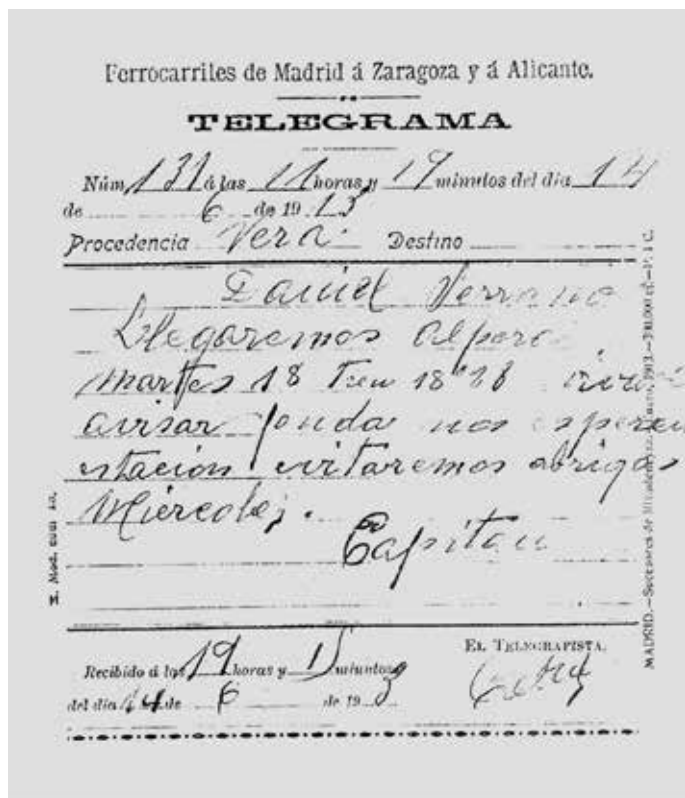 Ferrocarriles de Madrid á Zaragoza y á Alicante.
TELEGRAMA
Núm. 131 á las 11 horas y 19 minutos del día 14
de 6 de 1913
Procedencia Vera. Destino
Daniel Serrano
Llegaremos Alpera
martes 18 Tren 18'28
avisar fonda nos esperen
estación visitaremos abrigos
Miércoles.
Capitan
Recibido á las 19 horas y 15 minutos
del día 14 de 6 de 193
EL TELEGRAFISTA,
X. Mod. núm.
MADRID.—Sucesores de